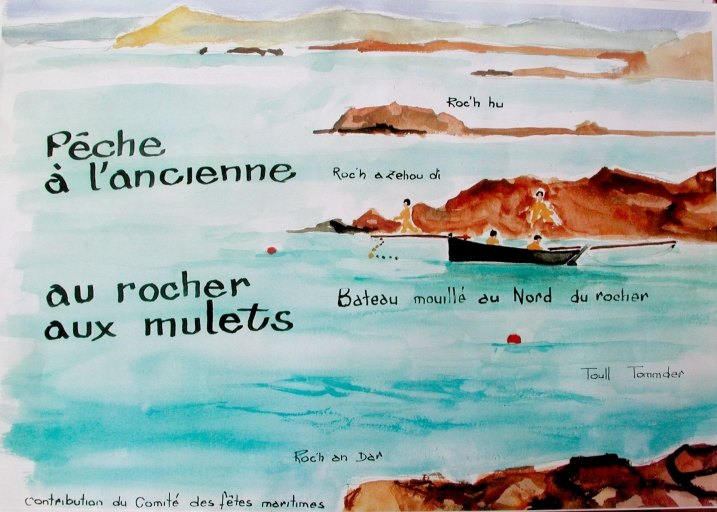 Roc'h hu
Pêche
à l'ancienne
Roc'h a žehou di
au rocher
aux mulets
Bateau mouillé au Nord du rocher
Toull Tommder
Roc'h an Dar
Contribution du Comité des fêtes maritimes